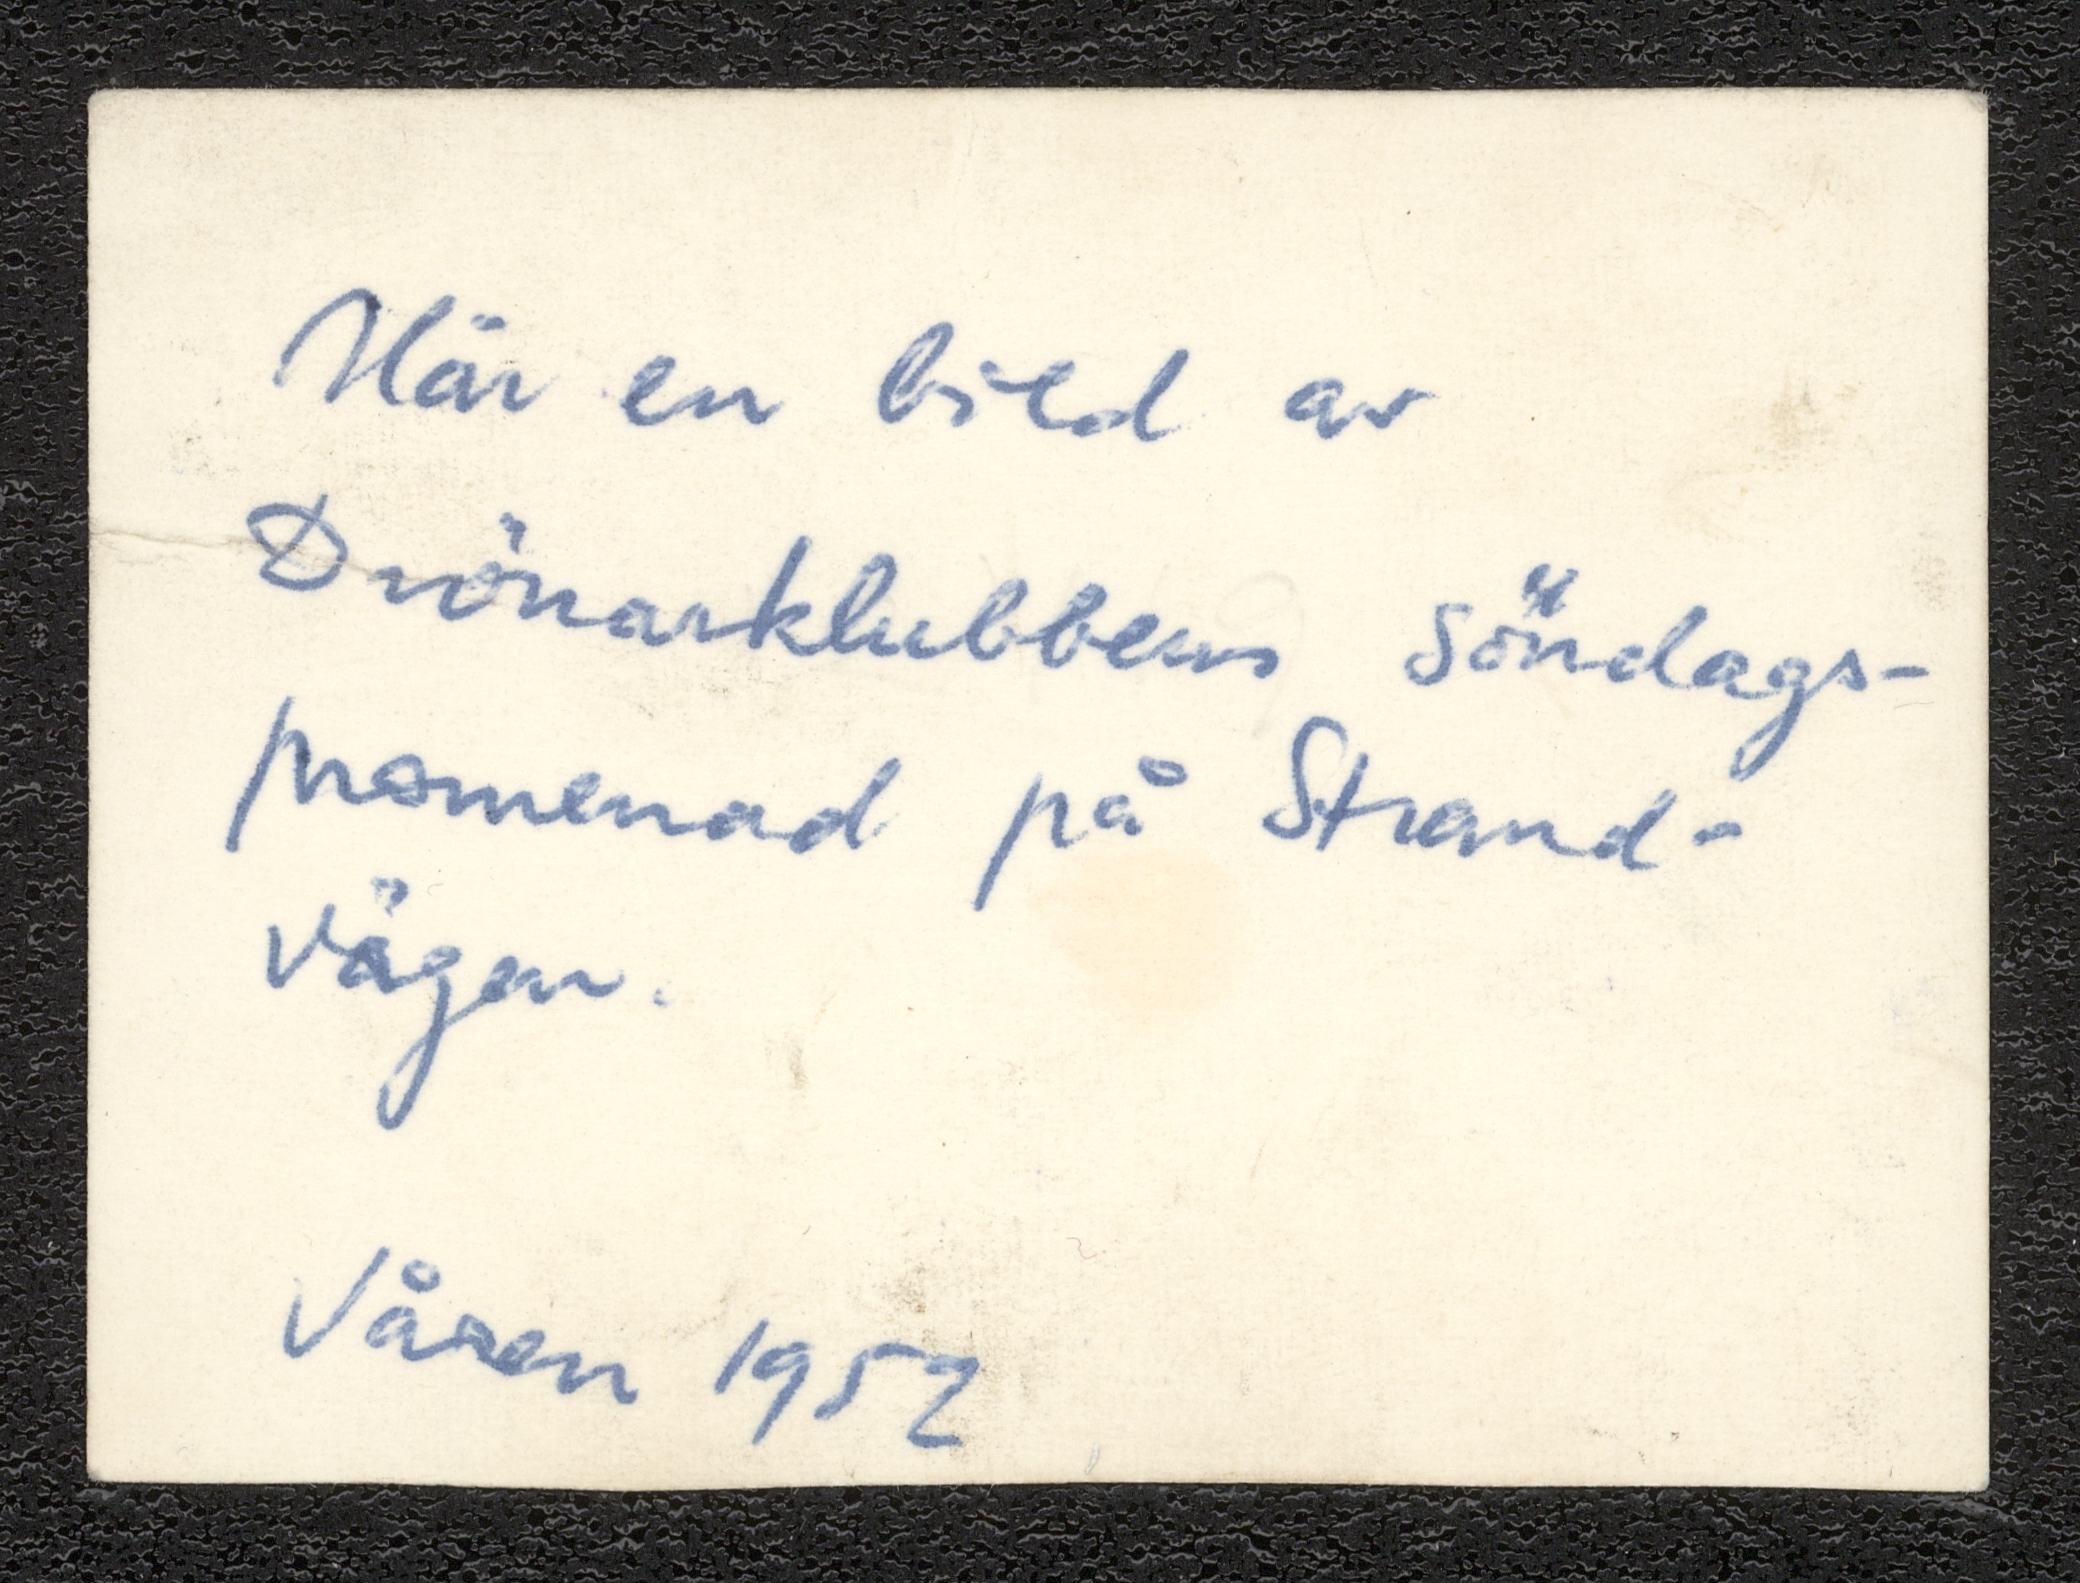 Här en bild av
Drönarklubbens söndags-
promenad på Strand-
vägen.
Våren 1952